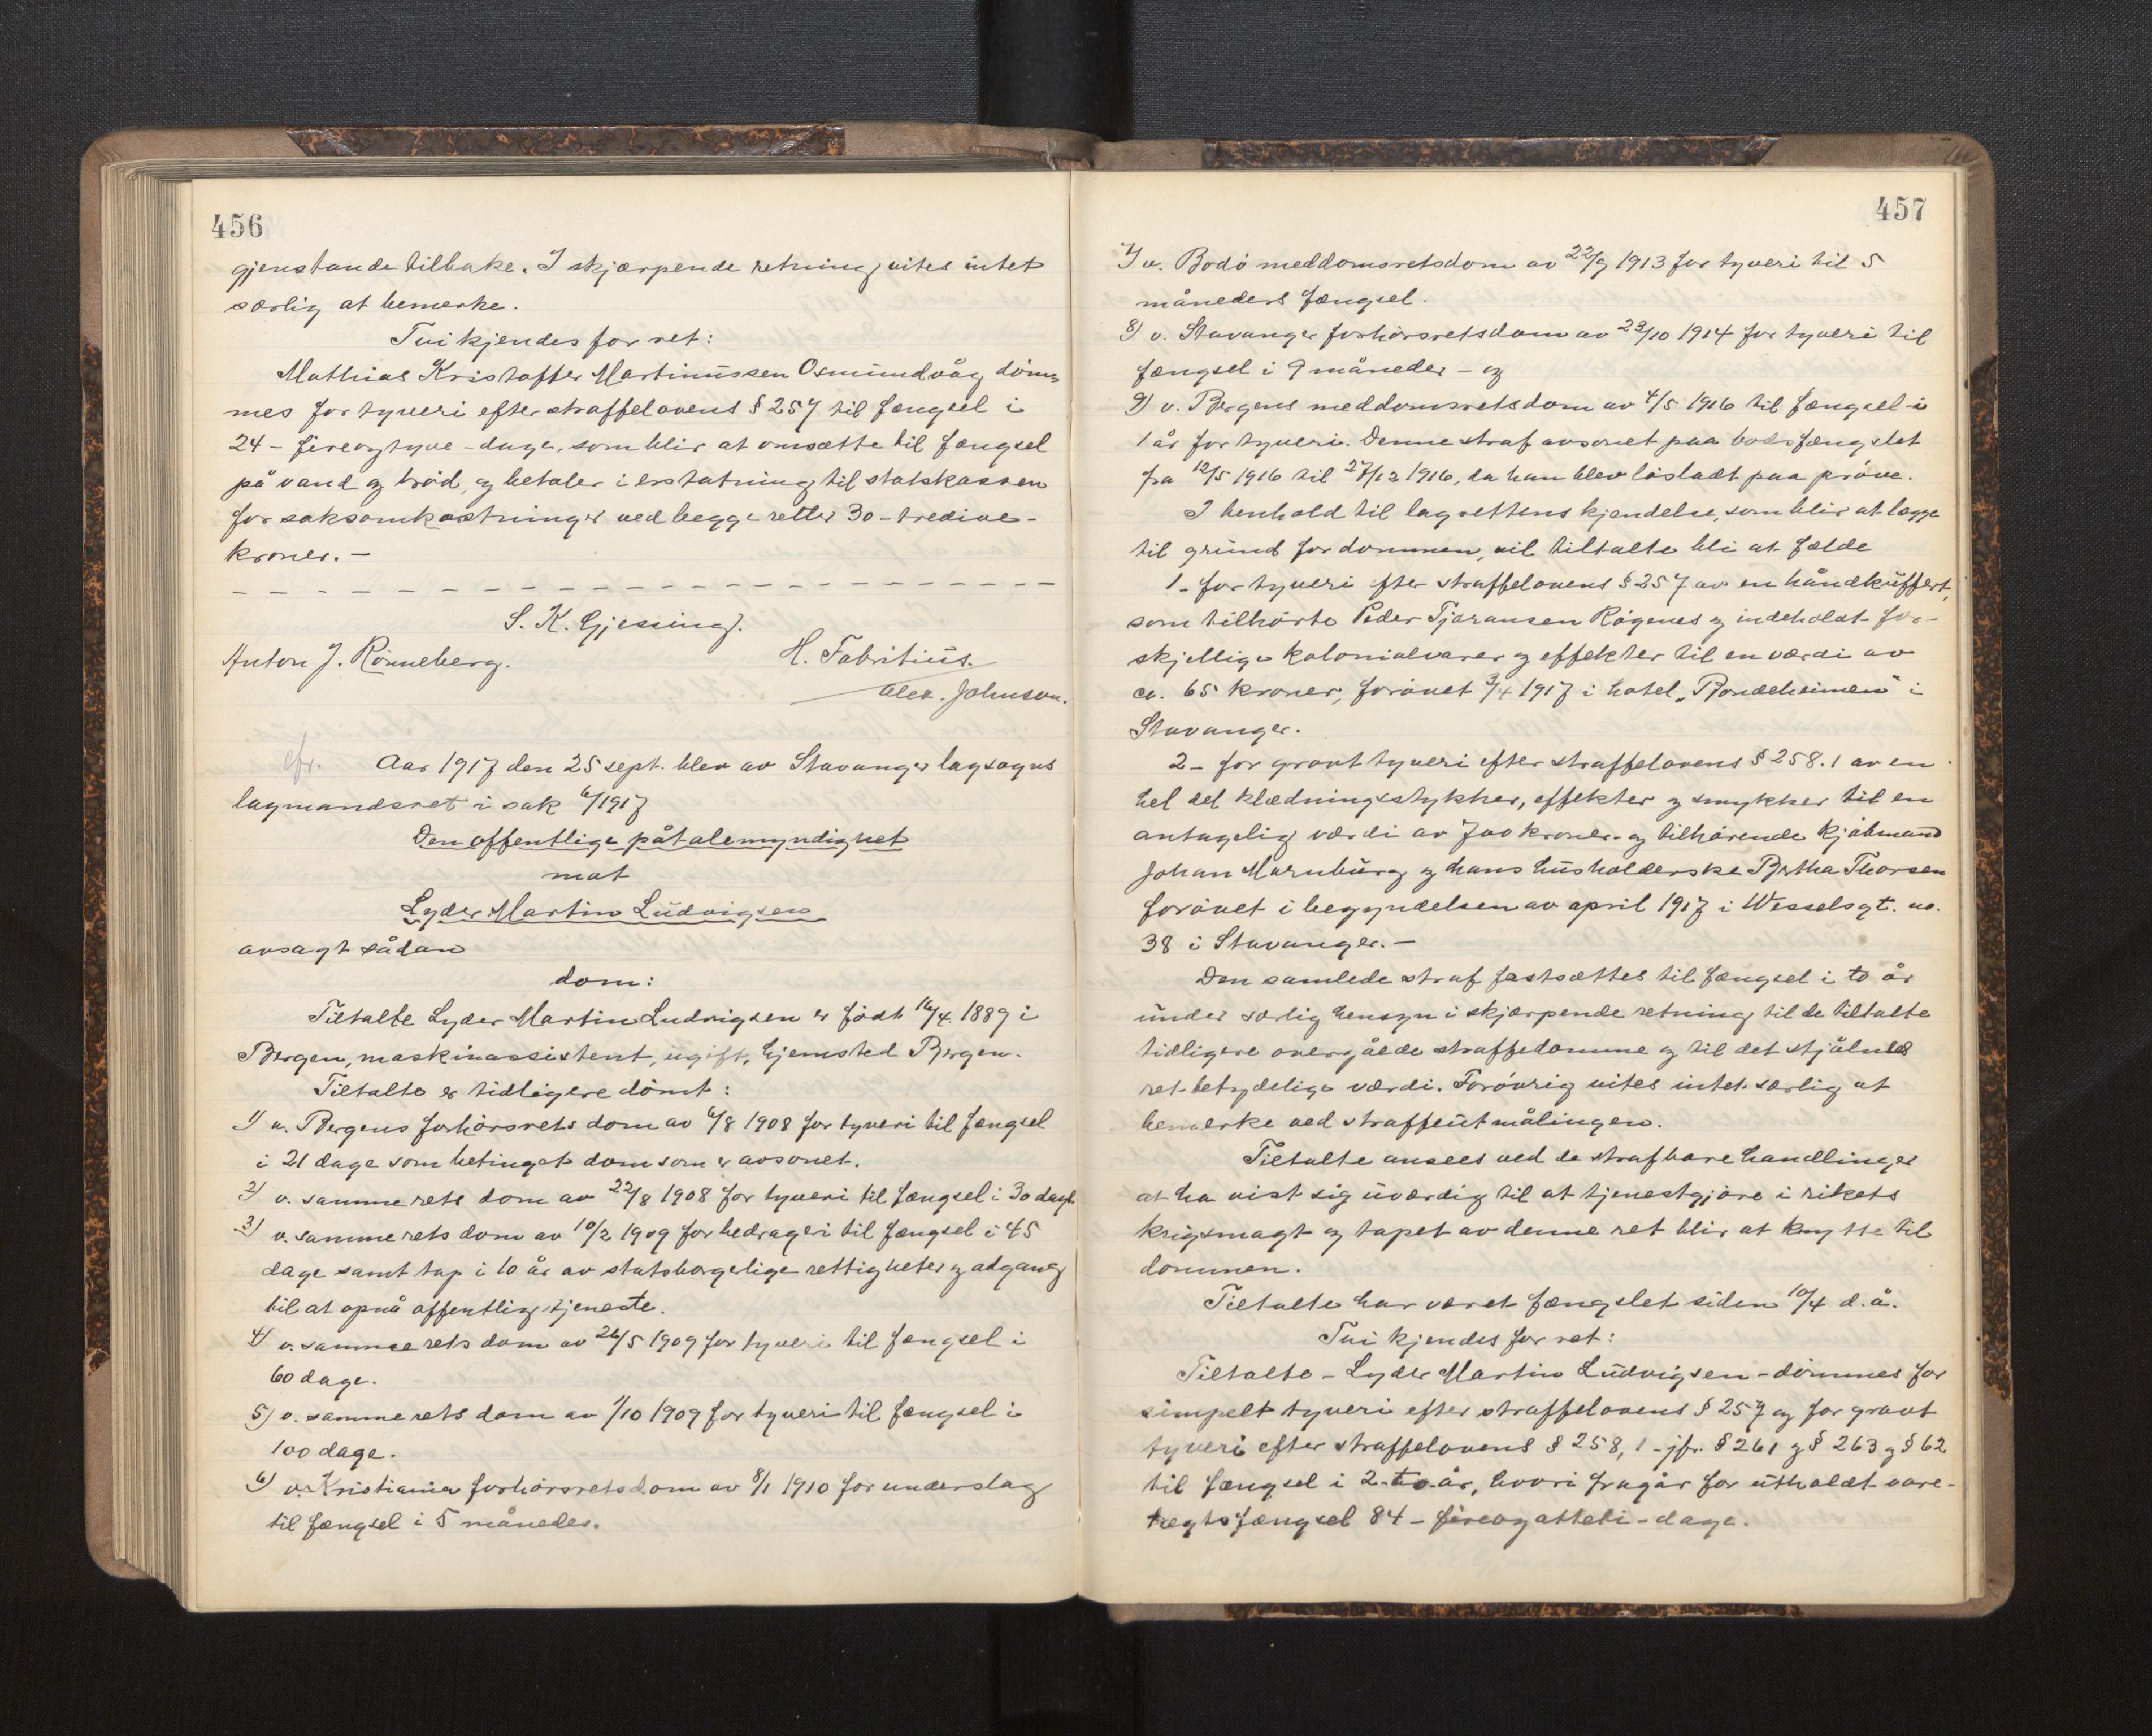 456
gjenstande tilbake. I skjærpende retning vites intet
særlig at bemerke.
Ti kjendes for ret:
Mathias Kristoffer Martinussen Osmundvåg döm-
mes for tyveri efter straffelovens § 257 til fængsel i
24 - fireogtyve - dage, som blir at omsætte til fængsel
på vand og bröd, og betaler i erstatning til statskassen
for saksomkostninger ved begge retter 30 - tredive -
kroner. -
S. K. Gjessing.
Anton J. Rönneberg.
H. Fabritius.
Alex. Johnson.
cfr. Aar 1917 den 25 sept. blev av Stavanger lagsogns
lagmandsret i sak 6/1917
Den offentlige påtalemyndighet
mot
Lyder Martin Ludvigsen
avsagt sådan
dom:
Tiltalte Lyder Martin Ludvigsen er födt 16/4 1889 i
Bergen, maskinassistent, ugift, hjemsted Bergen.
Tiltalte er tidligere dömt:
1) v. Bergens forhörsrets dom av 6/8 1908 for tyveri til fængsel
i 21 dage som betinget dom som er avsonet.
2) v. samme rets dom av 22/8 1908 for tyveri til fængsel i 30 dage
3) v. samme rets dom av 10/2 1909 for bedrageri til fængsel i 45
dage samt tap i 10 år av statsborgerlige rettigheter og adgang
til at opnå offentlig tjeneste.
4) v. samme rets dom av 26/5 1909 for tyveri til fængsel i
60 dage.
5) v. samme rets dom av 1/10 1909 for tyveri til fængsel i
100 dage.
6) v. Kristiania forhörsretsdom av 8/1 1910 for underslag
til fængsel i 5 måneder.
457
7) v. Bodö meddomsretsdom av 22/9 1913 for tyveri til 5
måneders fængsel.
8) v. Stavanger forhörsretsdom av 23/10 1914 for tyveri til
fængsel i 9 måneder - og
9) v. Bergens meddomsretsdom av 4/5 1916 til fængsel i
1 år for tyveri. Denne straf avsonet paa bodsfængslet
fra 12/5 1916 til 27/12 1916, da han blev löslatt paa pröve.
I henhold til lagrettens kjendelse, som blir at lægge
til grund for dommen, vil tiltalte bli at fælde
1 - for tyveri efter straffelovens § 257 av en håndkuffert,
som tilhörte Peder Tjeransen Rögenes og indeholdt for-
skjellige kolonialvarer og effekter til en værdi av
ca. 65 kroner, forövet 3/4 1917 i hotel "Bondeheimen" i
Stavanger.
2 - for grovt tyveri efter straffelovens § 258.1 av en
hel del klædningsstykker, effekter og smykker til en
antagelig værdi av 700 kroner og tilhörende kjöbmand
Johan Marnburg og hans husholderske Bertha Thorsen
forövet i begyndelsen av april 1917 i Wesselsgt. no.
38 i Stavanger. -
Den samlede straf fastsættes til fængsel i to år
under særlig hensyn i skjærpende retning til de tiltalte
tidligere overgåede straffedomme og til det stjålnes
ret betydelige værdi. Forövrig vites intet særlig at
bemerke ved straffeutmålingen.
Tiltalte ansees ved de strafbare handlinger
at ha vist sig uværdig til at tjenestgjöre i rikets
krigsmagt og tapet av denne ret blir at knytte til
dommen.
Tiltalte har været fængslet siden 10/4 d.å.
Ti kjendes for ret:
Tiltalte - Lyder Martin Ludvigsen - dömmes for
simpelt tyveri efter straffelovens § 257 og for grovt
tyveri efter straffelovens § 258, 1 - jfr. § 261 og § 263 og § 62
til fængsel i 2 - to år, hvori fragår for utholdt vare-
tægtsfængsel 84 - fireogatteti - dage.